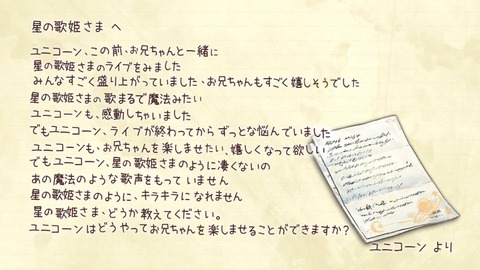 星の歌姫さま へ
ユニコーン、この前、お兄ちゃんと一緒に
星の歌姫さまのライブをみました
みんなすごく盛り上がっていました、お兄ちゃんもすごく嬉しそうでした
星の歌姫さまの歌まるで魔法みたい
ユニコーンも、感動しちゃいました
でもユニコーン、ライブが終わってから ずっとな悩んでいました
ユニコーンも、お兄ちゃんを楽しませたい、嬉しくなって欲しい
でもユニコーン、星の歌姫さまのように凄くないの
あの魔法のような歌声をもって いません
星の歌姫さまのように、キラキラに なれません
星の歌姫さま、どうか教えてください。
ユニコーンはどうやってお兄ちゃんを楽しませることができますか?
ユニコーン より